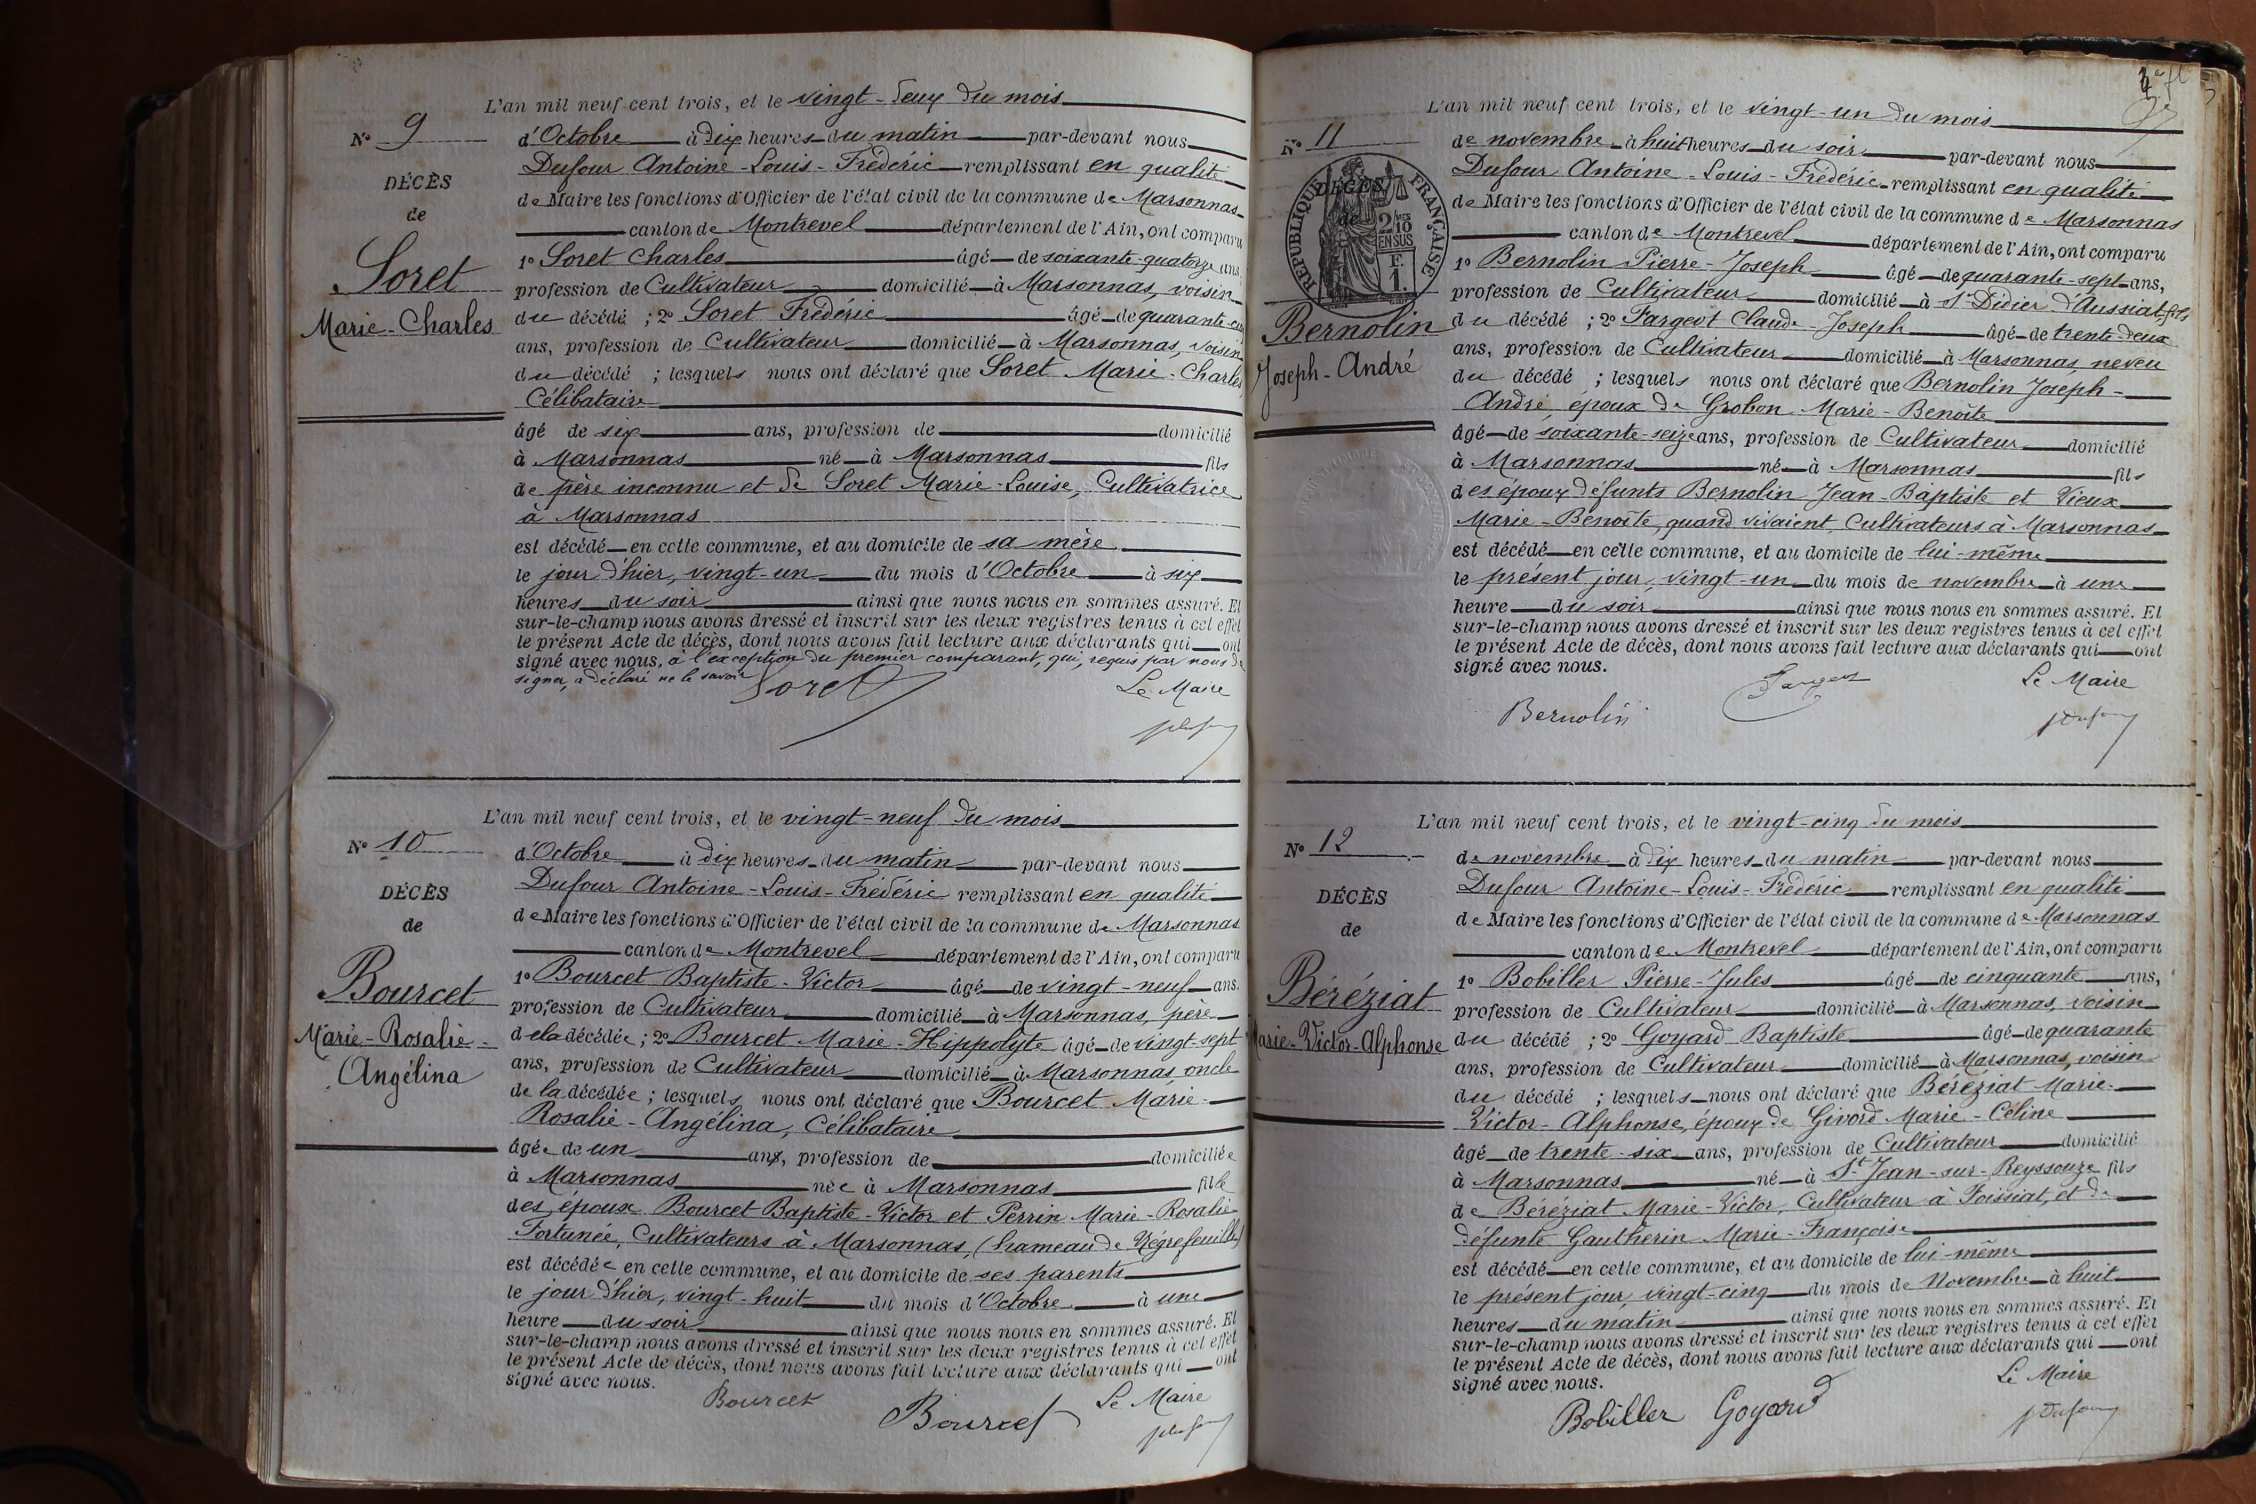 L'an mil neuf cent trois, et le vingt-deux du mois
N° 9
d'Octobre à dix heures du matin par-devant nous
DÉCÈS
Dufour Antoine-Louis-Frédéric remplissant en qualité
de
de Maire les fonctions d'Officier de l'état civil de la commune de Marsonnas
canton de Montrevel département de l'Ain, ont comparu
Soret
1° Soret Charles âgé de soixante-quatorze ans,
profession de Cultivateur domicilié à Marsonnas, voisin
Marie-Charles
du décédé ; 2° Soret Frédéric âgé de quarante
ans, profession de Cultivateur domicilié à Marsonnas, voisin
du décédé ; lesquels nous ont déclaré que Soret Marie-Charles,
Célibataire
âgé de six ans, profession de domicilié
à Marsonnas né à Marsonnas fils
de père inconnu et de Soret Marie-Louise, Cultivatrice
à Marsonnas
est décédé en cette commune, et au domicile de sa mère
le jour d'hier, vingt-un du mois d'Octobre à six
heures du soir ainsi que nous nous en sommes assuré. Et
sur-le-champ nous avons dressé et inscrit sur les deux registres tenus à cet effet
le présent Acte de décès, dont nous avons fait lecture aux déclarants qui ont
signé avec nous, à l'exception du premier comparant, qui, requis par nous de
signer, a déclaré ne le savoir
Soret
Le Maire
L'an mil neuf cent trois, et le vingt-neuf du mois
N° 10
d'Octobre à dix heures du matin par-devant nous
DÉCÈS
Dufour Antoine-Louis-Frédéric remplissant en qualité
de
de Maire les fonctions d'Officier de l'état civil de la commune de Marsonnas
canton de Montrevel département de l'Ain, ont comparu
Bourcet
1° Bourcet Baptiste-Victor âgé de vingt-neuf ans,
profession de Cultivateur domicilié à Marsonnas, père
Marie-Rosalie-
de la décédée ; 2° Bourcet Marie-Hippolyte âgé de vingt-sept
Angélina
ans, profession de Cultivateur domicilié à Marsonnas, oncle
de la décédée ; lesquels nous ont déclaré que Bourcet Marie-
Rosalie-Angélina, Célibataire
âgée de un ans, profession de domiciliée
à Marsonnas née à Marsonnas fille
des époux Bourcet Baptiste-Victor et Perrin Marie-Rosalie
Fortunée, Cultivateurs à Marsonnas, (hameau de Négrefeuille)
est décédée en cette commune, et au domicile de ses parents
le jour d'hier, vingt-huit du mois d'Octobre à une
heure du soir ainsi que nous nous en sommes assuré. Et
sur-le-champ nous avons dressé et inscrit sur les deux registres tenus à cet effet
le présent Acte de décès, dont nous avons fait lecture aux déclarants qui ont
signé avec nous.
Bourcet Bourcet Le Maire
L'an mil neuf cent trois, et le vingt-un du mois
N° 11
de novembre à huit heures du soir par-devant nous
RÉPUBLIQUE FRANÇAISE
2/10 EN SUS
F. 1.
DÉCÈS
Dufour Antoine-Louis-Frédéric remplissant en qualité
de
de Maire les fonctions d'Officier de l'état civil de la commune de Marsonnas
canton de Montrevel département de l'Ain, ont comparu
1° Bernolin Pierre-Joseph âgé de quarante-sept ans,
profession de Cultivateur domicilié à St Didier d'Aussiat, fils
Bernolin
du décédé ; 2° Fargeot Claude-Joseph âgé de trente-deux
ans, profession de Cultivateur domicilié à Marsonnas, neveu
Joseph-André
du décédé ; lesquels nous ont déclaré que Bernolin Joseph-
André, époux de Grobon Marie-Benoîte
âgé de soixante-seize ans, profession de Cultivateur domicilié
à Marsonnas né à Marsonnas fils
des époux défunts Bernolin Jean-Baptiste et Vieux
Marie-Benoîte, quand vivaient, Cultivateurs à Marsonnas
est décédé en cette commune, et au domicile de lui-même
le présent jour, vingt-un du mois de novembre à une
heure du soir ainsi que nous nous en sommes assuré. Et
sur-le-champ nous avons dressé et inscrit sur les deux registres tenus à cet effet
le présent Acte de décès, dont nous avons fait lecture aux déclarants qui ont
signé avec nous.
Fargeot Le Maire
Bernolin Dufour
L'an mil neuf cent trois, et le vingt-cinq du mois
N° 12
de novembre à dix heures du matin par-devant nous
DÉCÈS
Dufour Antoine-Louis-Frédéric remplissant en qualité
de
de Maire les fonctions d'Officier de l'état civil de la commune de Marsonnas
canton de Montrevel département de l'Ain, ont comparu
Béréziat
1° Bobiller Pierre-Jules âgé de cinquante ans,
profession de Cultivateur domicilié à Marsonnas, voisin
Marie-Victor-Alphonse
du décédé ; 2° Goyard Baptiste âgé de quarante
ans, profession de Cultivateur domicilié à Marsonnas, voisin
du décédé ; lesquels nous ont déclaré que Béréziat Marie-
Victor-Alphonse, époux de Givord Marie-Céline
âgé de trente-six ans, profession de Cultivateur domicilié
à Marsonnas né à St Jean-sur-Reyssouze fils
de Béréziat Marie-Victor, Cultivateur à Foissiat, et de
défunte Gautherin Marie-Françoise
est décédé en cette commune, et au domicile de lui-même
le présent jour, vingt-cinq du mois de Novembre à huit
heures du matin ainsi que nous nous en sommes assuré. Et
sur-le-champ nous avons dressé et inscrit sur les deux registres tenus à cet effet
le présent Acte de décès, dont nous avons fait lecture aux déclarants qui ont
signé avec nous.
Le Maire
Bobiller Goyard Dufour